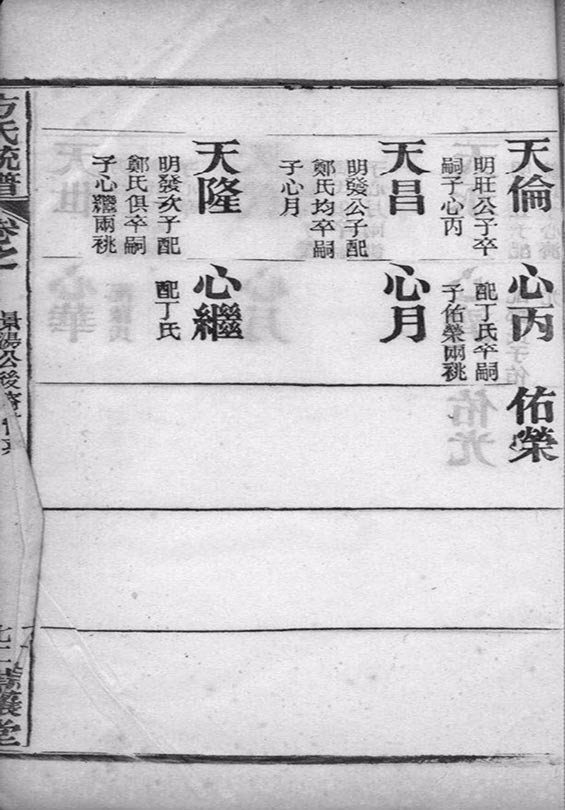 天倫
明旺公子卒
嗣子心丙
心丙
配丁氏卒嗣
子佑榮兩祧
佑榮
天昌
明發公子配
鄭氏均卒嗣
子心月
心月
天隆
明發次子配
鄭氏俱卒嗣
子心繼兩祧
心繼
配丁氏
方氏統譜
卷之